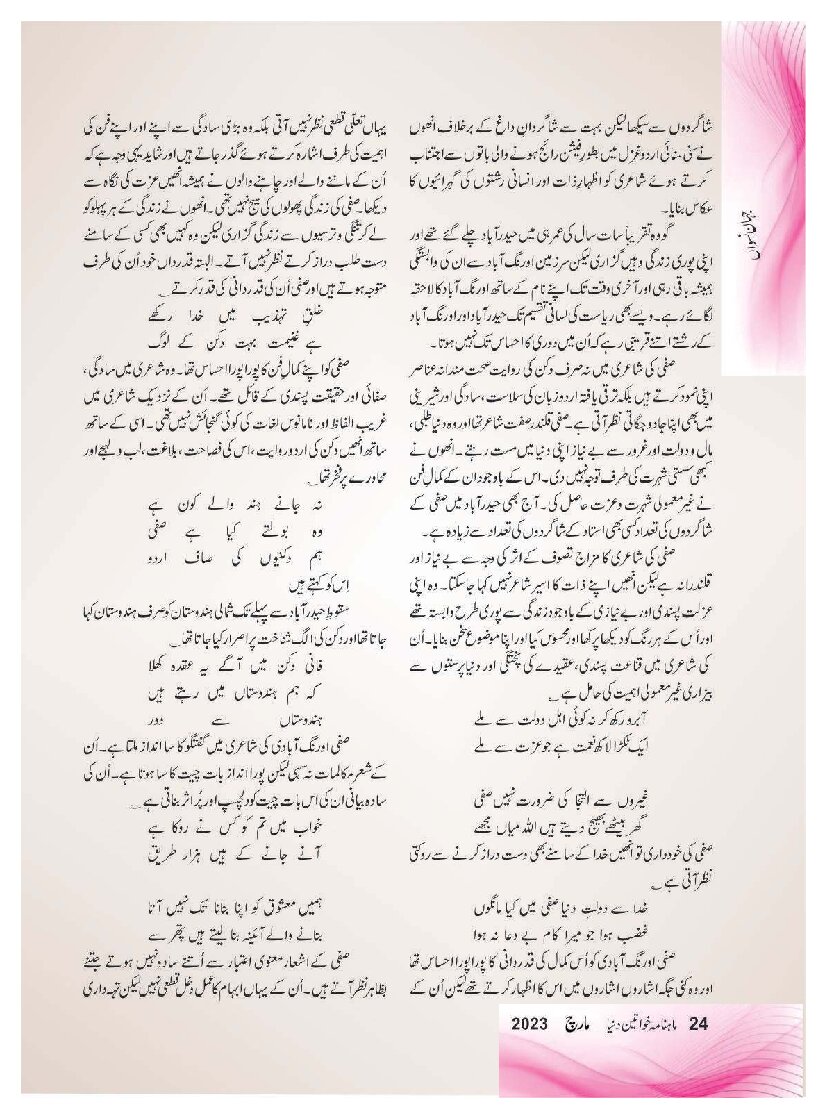 جہان نسواں
شاگردوں سے سیکھا لیکن بہت سے شاگردانِ داغ کے برخلاف انھوں
نے سنی سنائی اردو غزل میں بطور فیشن رائج ہونے والی باتوں سے اجتناب
کرتے ہوئے شاعری کو اظہارِ ذات اور انسانی رشتوں کی گہرائیوں کا
عکاس بنایا۔
گو وہ تقریباً سات سال کی عمر ہی میں حیدر آباد چلے گئے تھے اور
اپنی پوری زندگی وہیں گزاری لیکن سرزمین اورنگ آباد سے ان کی وابستگی
ہمیشہ باقی رہی اور آخری وقت تک اپنے نام کے ساتھ اورنگ آباد کا لاحقہ
لگائے رہے۔ ویسے بھی ریاست کی لسانی تقسیم تک حیدر آباد اور اورنگ آباد
کے رشتے اتنے قریبی رہے کہ اُن میں دوری کا احساس تک نہیں ہوتا۔
صفی کی شاعری میں نہ صرف دکن کی روایت صحت مندانہ عناصر
اپنی نمود کرتے ہیں بلکہ ترقی یافتہ اردو زبان کی سلاست، سادگی اور شیرینی
میں بھی اپنا جادو جگاتی نظر آتی ہے۔ صفی قلندر صفت شاعر تھا اور وہ دنیا طلبی،
مال و دولت اور غرور سے بے نیاز اپنی دنیا میں مست رہتے۔ انھوں نے
کبھی سستی شہرت کی طرف توجہ نہیں دی۔ اس کے باوجود ان کے کمالِ فن
نے غیر معمولی شہرت و عزت حاصل کی۔ آج بھی حیدر آباد میں صفی کے
شاگردوں کی تعداد کسی بھی استاد کے شاگردوں کی تعداد سے زیادہ ہے۔
صفی کی شاعری کا مزاج تصوف کے اثر کی وجہ سے بے نیاز اور
قلندرانہ ہے لیکن انھیں اپنے ذات کا اسیر شاعر نہیں کہا جاسکتا۔ وہ اپنی
عزلت پسندی اور بے نیازی کے باوجود زندگی سے پوری طرح وابستہ تھے
اور اُس کے ہر رنگ کو دیکھا پرکھا اور محسوس کیا اور اپنا موضوع سخن بنایا۔ اُن
کی شاعری میں قناعت پسندی، عقیدے کی پختگی اور دنیا پرستوں سے
بیزاری غیر معمولی اہمیت کی حامل ہے ؎
آبرو رکھ کر نہ کوئی اہلِ دولت سے ملے
ایک ٹکڑا لاکھ نعمت ہے جو عزت سے ملے
غیروں سے التجا کی ضرورت نہیں صفی
گھر بیٹھے بھیج دیتے ہیں اللہ میاں مجھے
صفی کی خودداری تو انھیں خدا کے سامنے بھی دست دراز کرنے سے روکتی
نظر آتی ہے ؎
خدا سے دولتِ دنیا صفی میں کیا مانگوں
غضب ہوا جو میرا کام بے دعا نہ ہوا
صفی اورنگ آبادی کو اُس کمال کی قدردانی کا پورا پورا احساس تھا
اور وہ کئی جگہ اشاروں اشاروں میں اس کا اظہار کرتے تھے لیکن اُن کے
یہاں تعلّی قطعی نظر نہیں آتی بلکہ وہ بڑی سادگی سے اپنے اور اپنے فن کی
اہمیت کی طرف اشارہ کرتے ہوئے گذر جاتے ہیں اور شاید یہی وجہ ہے کہ
اُن کے ماننے والے اور چاہنے والوں نے ہمیشہ انھیں عزت کی نگاہ سے
دیکھا۔ صفی کی زندگی پھولوں کی سیج نہیں تھی۔ انھوں نے زندگی کے ہر پہلو کو
لے کر تنگی و ترسیوں سے زندگی گزاری لیکن وہ کہیں بھی کسی کے سامنے
دست طلب دراز کرتے نظر نہیں آتے۔ البتہ قدرداں خود اُن کی طرف
متوجہ ہوتے ہیں اور صفی اُن کی قدردانی کی قدر کرتے ؎
خلقِ تہذیب میں خدا رکھے
ہے غنیمت بہت دکن کے لوگ
صفی کو اپنے کمالِ فن کا پورا پورا احساس تھا۔ وہ شاعری میں سادگی،
صفائی اور حقیقت پسندی کے قائل تھے۔ اِن کے نزدیک شاعری میں
غریب الفاظ اور نامانوس لغات کی کوئی گنجائش نہیں تھی۔ اسی کے ساتھ
ساتھ انھیں دکن کی اردو روایت، اس کی فصاحت، بلاغت، لب و لہجے اور
محاورے پر فخر تھا ؎
نہ جانے ہند والے کون ہے
وہ بولتے کیا ہے صفی
ہم دکنیوں کی صاف اردو
اِس کو کہتے ہیں
سقوطِ حیدر آباد سے پہلے تک شمالی ہندوستان کو صرف ہندوستان کہا
جاتا تھا اور دکن کی الگ شناخت پر اصرار کیا جاتا تھا ؎
فانی دکن میں آکے یہ عقدہ کھلا
کہ ہم ہندوستاں میں رہتے ہیں
ہندوستاں سے دور
صفی اورنگ آبادی کی شاعری میں گفتگو کا سا انداز ملتا ہے۔ اُن
کے شعر مکالمات نہ سہی لیکن پورا انداز بات چیت کا سا ہوتا ہے۔ اُن کی
سادہ بیانی ان کی اس بات چیت کو دلچسپ اور پُر اثر بناتی ہے ؎
خواب میں تم کو کس نے روکا ہے
آنے جانے کے ہیں ہزار طریق
ہمیں معشوق کو اپنا بنانا تک نہیں آتا
بنانے والے آئینہ بنا لیتے ہیں پتھر سے
صفی کے اشعار معنوی اعتبار سے اُتنے سادہ نہیں ہوتے جتنے
بظاہر نظر آتے ہیں۔ اُن کے یہاں ابہام کا عمل دخل قطعی نہیں لیکن تہہ داری
24 ماہنامہ خواتین دنیا مارچ 2023